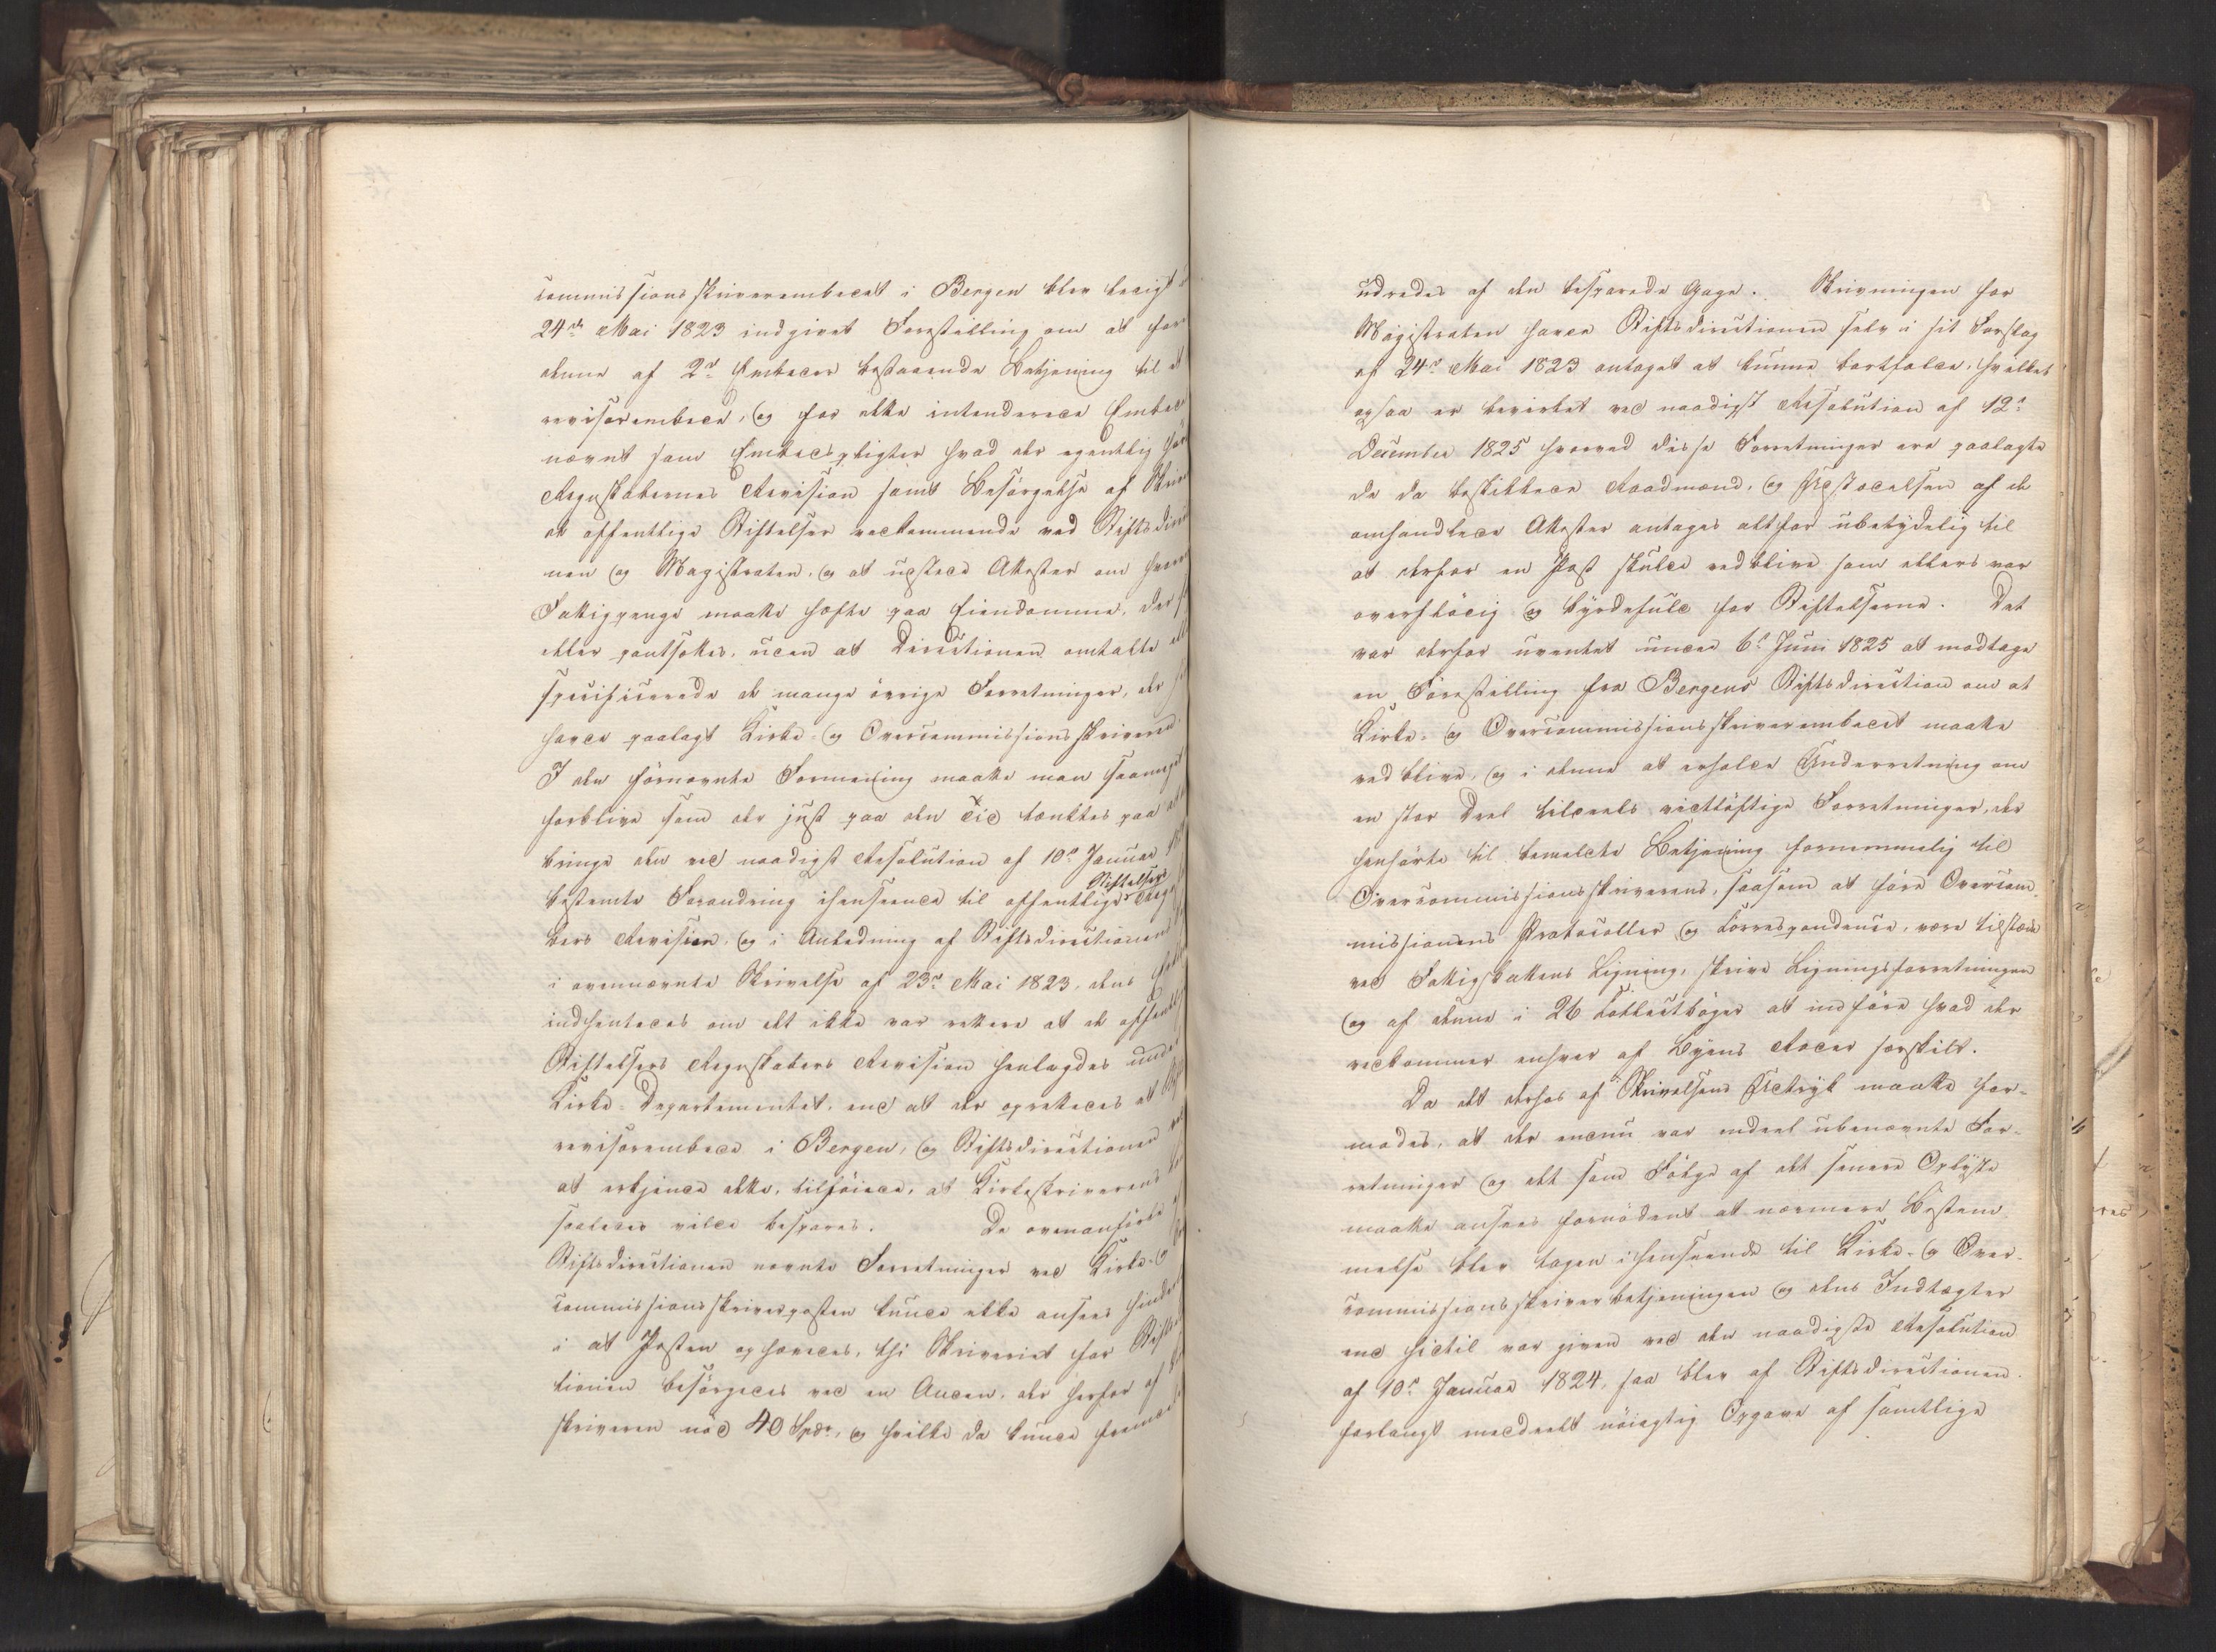 commissionsskriverembedet i Bergen blev ledigt
24de Mai 1823 indgivet Forestilling om at for
denne af 2de Embeder bestaaende Betjening til et
revisorembede, og for dette intenderede Embede
nævnt som Embedspligter hvad der egentlig
Regnskabernes Revision samt Besørgelse af
de offentlige Stiftelser vedkommende ved Stiftsdirec
nen og Magistraten, og at udstede Attester om
Fattigpenge maatte hæfte paa Eiendomme, der
eller pantsættes, uden at Directionen omtalte
specificerede de mange øvrige Forretninger, der
havde paalagt Kirke- og Overcommissionsskriveren.
I den førnævnte Formening maatte man saameget
forblive som der just paa den Tid tænktes paa at
bringe den ved naadigst Resolution af 10de Januar
bestemte Forandring ihenseende til offentlige Stiftelsers Regn
bers Revision, og i Anledning af Stiftsdirectionens
i ovennævnte Skrivelse af 23de Mai 1823, dens
indhentedes om det ikke var rettere at de offentl
Stiftelsers Regnskabers Revision henlagdes under
Kirke-Departementet, end at der oprettedes et
revisorembede i Bergen, og Stiftsdirectionen
at erkjende dette, tilføiede, at Kirkeskriverens
saaledes vilde bespares. De ovenanførte
Stiftsdirectionen nævnte Forretninger ved Kirke- og
commissionsskriverposten kunde ikke ansees
i at Posten ophævedes, thi Skriveriet for Stiftsd
tionen besørgedes ved en Anden, der herfor af
skriveren nød 40 Spdr, og hvilke da kunde fremde
udredes af den besparede Gage. Skrivningen for
Magistraten havde Stiftsdirectionen selv i sit Forslag
af 24de Mai 1823 antaget at kunne bortfalde, hvilket
ogsaa er bevirket ved naadigst Resolution af 12te
December 1825 hvorved disse Forretninger ere paalagte
de da beskikkede Raadmænd, og Udstædelsen af de
omhandlede Attester antages altfor ubetydelig til
at derfor en Post skulde vedblive som ellers var
overflødig og byrdefuld for Stiftelserne. Det
var derfor uventet under 6te Juni 1825 at modtage
en Forestilling fra Bergens Stiftsdirection om at
Kirke- og Overcommissionsskriverembedet maatte
vedblive, og i denne at erholde Underretning om
en stor Deel tildeels vidtløftige Forretninger, der
henhørte til bemeldte Betjening fornemmelig til
Overcommissionsskriverens, saasom at føre Overcom-
missionens Protocoller og Correspondence, være tilstæde
ved Fattigskattens Ligning, skrive Ligningsforretningen
og af denne i 26 Collectbøger at indføre hvad der
vedkommer enhver af Byens Roder særskilt.
Da det derhos af Skrivelsens Udtryk maatte for-
modes, at der endnu var endeel ubenævnte For-
retninger og det som Følge af det senere Oplyste
maatte ansees fornødent at nærmere Bestem-
melse blev tagen ihenseende til Kirke- og Over-
commissionsskriverbetjeningen og dens Indtægter
end hidtil var given ved den naadigste Resolution
af 10de Januar 1824, saa blev af Stiftsdirectionen
forlangt meddeelt nøiagtig Opgave af samtlige